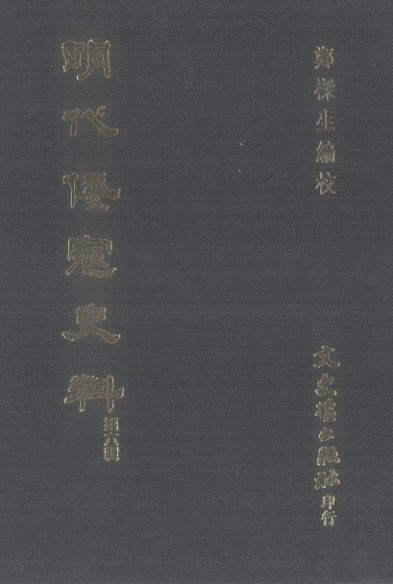 鄭樑生編校
明代倭寇史料
第六輯
文史哲出版社印行